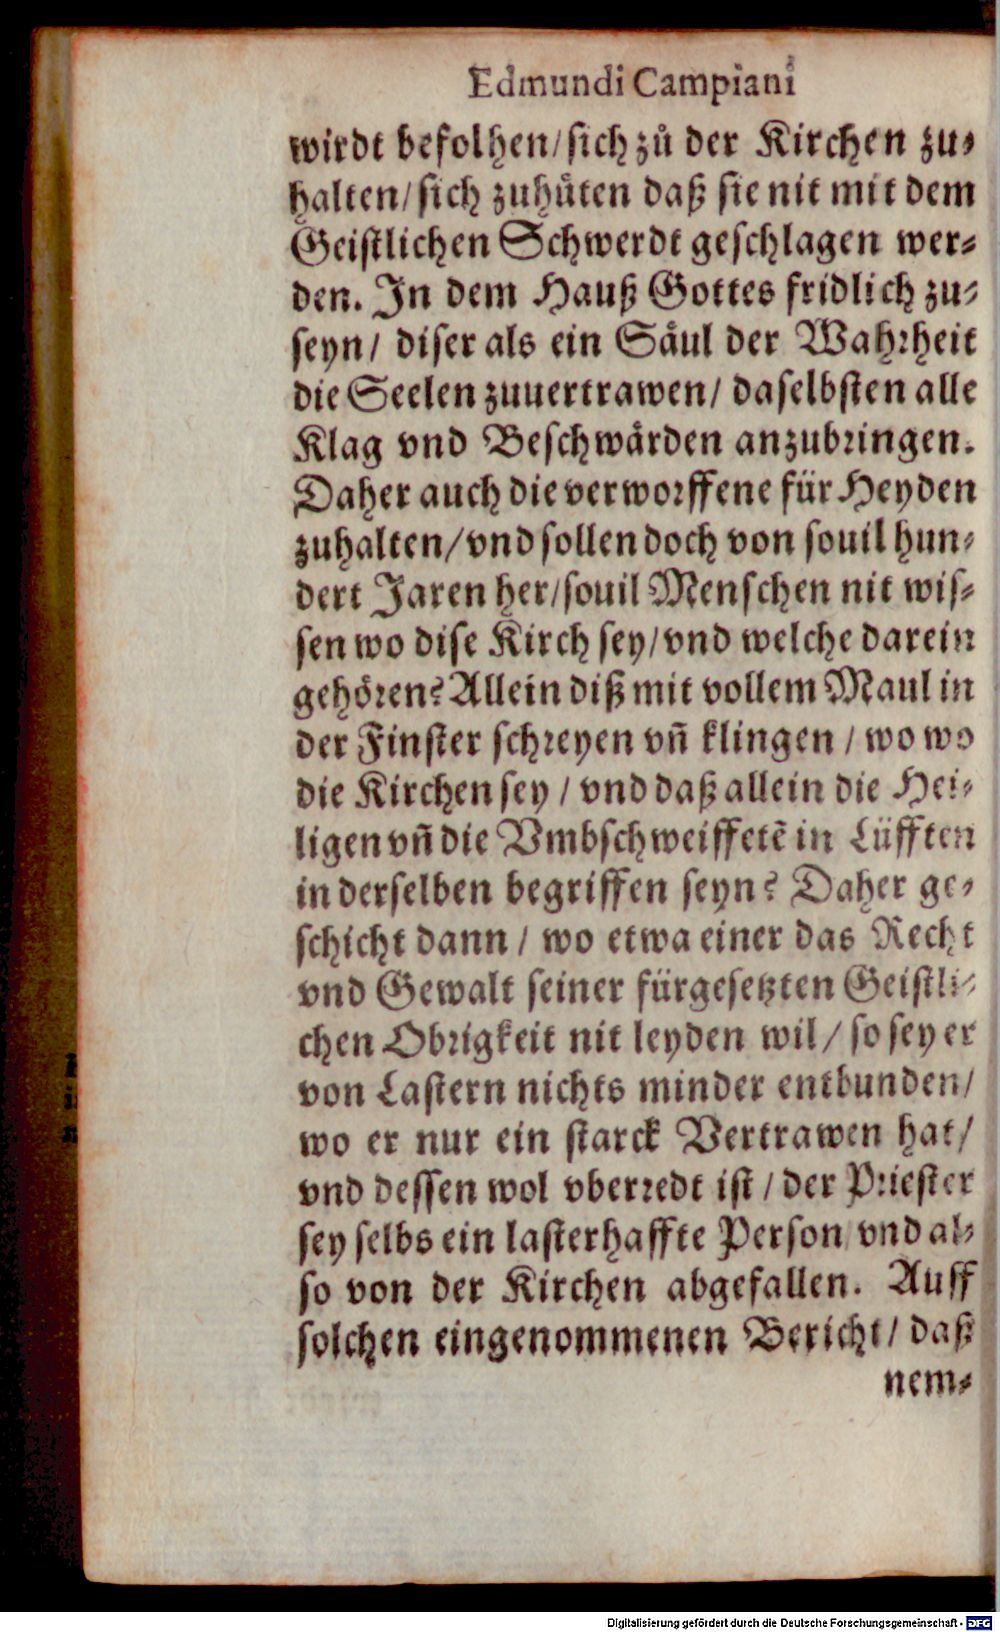 Edmundi Campiani
wirdt befolhen/ sich zů der Kirchen zu⸗
halten/ sich zuhüten daß sie nit mit dem
Geistlichen Schwerdt geschlagen wer⸗
den. In dem Hauß Gottes fridlich zu⸗
seyn/ diser als ein Säul der Wahrheit
die Seelen zuuertrawen/ daselbsten alle
Klag vnd Beschwärden anzubringen.
Daher auch die verworffene für Heyden
zuhalten/ vnd sollen doch von souil hun⸗
dert Jaren her/ souil Menschen nit wis⸗
sen wo dise Kirch sey/ vnd welche darein
gehören? Allein diß mit vollem Maul in
der Finster schreyen vñ klingen / wo wo
die Kirchen sey / vnd daß allein die Hei⸗
ligen vñ die Vmbschweiffetẽ in Lüfften
in derselben begriffen seyn? Daher ge⸗
schicht dann / wo etwa einer das Recht
vnd Gewalt seiner fürgesetzten Geistli⸗
chen Obrigkeit nit leyden wil/ so sey er
von Lastern nichts minder entbunden/
wo er nur ein starck Vertrawen hat/
vnd dessen wol vberredt ist / der Priester
sey selbs ein lasterhaffte Person vnd al⸗
so von der Kirchen abgefallen. Auff
solchen eingenommenen Bericht/ daß
nem⸗
Digitalisierung gefördert durch die Deutsche Forschungsgemeinschaft - DFG